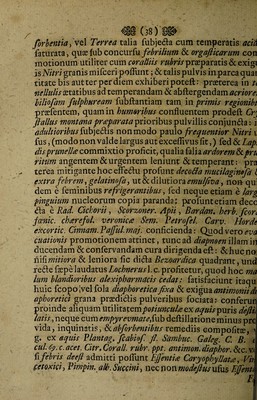 (38)
sorbentia, vel Terrea talia subjecta cum temperatis acid
saturata, quæ sub concursu febrilium & orgasticarum com
motionum utiliter cum corallis rubris præparatis & exigu
is Nitri granis misceri possunt; & talis pulvis in parca quan
titate bis aut ter per diem exhiberi potest: præterea in te
nellulis ætatibus ad temperandam & abstergendam acriorem
biliosam sulphuream substantiam tam in primis regionibus
præsentem, quam in humoribus confluentem prodest
stallus montana præparata prioribus pulvillis conjuncta:
adultioribus subjectis non modo paulo frequentior Nitri
sus, (modo non valde largus aut excessivus sit,) sed &
dis prunellæ commixtio proficit, qualia salia ardorem & pru
ritum angentem & urgentem leniunt & temperant: præ
terea mitigante hoc effectu prosunt decocta mucilaginosa
extra febrem, gelatinosa, ut & dilutiora emulsiva, non qui
dem è seminibus refrigerantibus, sed neque etiam è larg
pinguium nucleorum copia paranda: prosunt etiam deco
cta è Rad. Cichorii, Scorzoner. Apii, Bardan. herb. scor
junic. cheresol. veronicæ. Sem. Petrosel. Carv. Horde
excortic. Cinnam. Passul. maj. conficienda: Quod vero eva
cuationis promotionem attinet, tunc ad diapnoen illam in
ducendam & conservandam cura dirigenda est: & huc no
nisi mitiora & leniora sic dicta Bezoardica quadrant, unde
recte sæpè laudatus Lochnerus l. c. profitetur, quod hoc ma
lum blandioribus alexipharmacis cedat: satisfaciunt itaque
huic scopo vel sola diaphoretica fixa & exigua antimonii dia
aphoretici grana prædictis pulveribus sociata: conferunt
proinde aliquam utilitatem potiunculæ ex aquis puris destil
latis, neque cum empyrevmate, sub destillatione minus pro
vida, inquinatis, & absorbentibus remediis compositæ, v.
g. ex aquis Plantag. scabios. fl. Sambuc. Galeg. C. B.
cul. 69. c. acet. Citr. Corall. rubr. ppt. antimon. diaphor. &c.
si febris deest admitti possunt Essentiæ Caryophyllatæ, Vin
cetoxici, Pimpin. alb. Succini, nec non modestus usus Essent